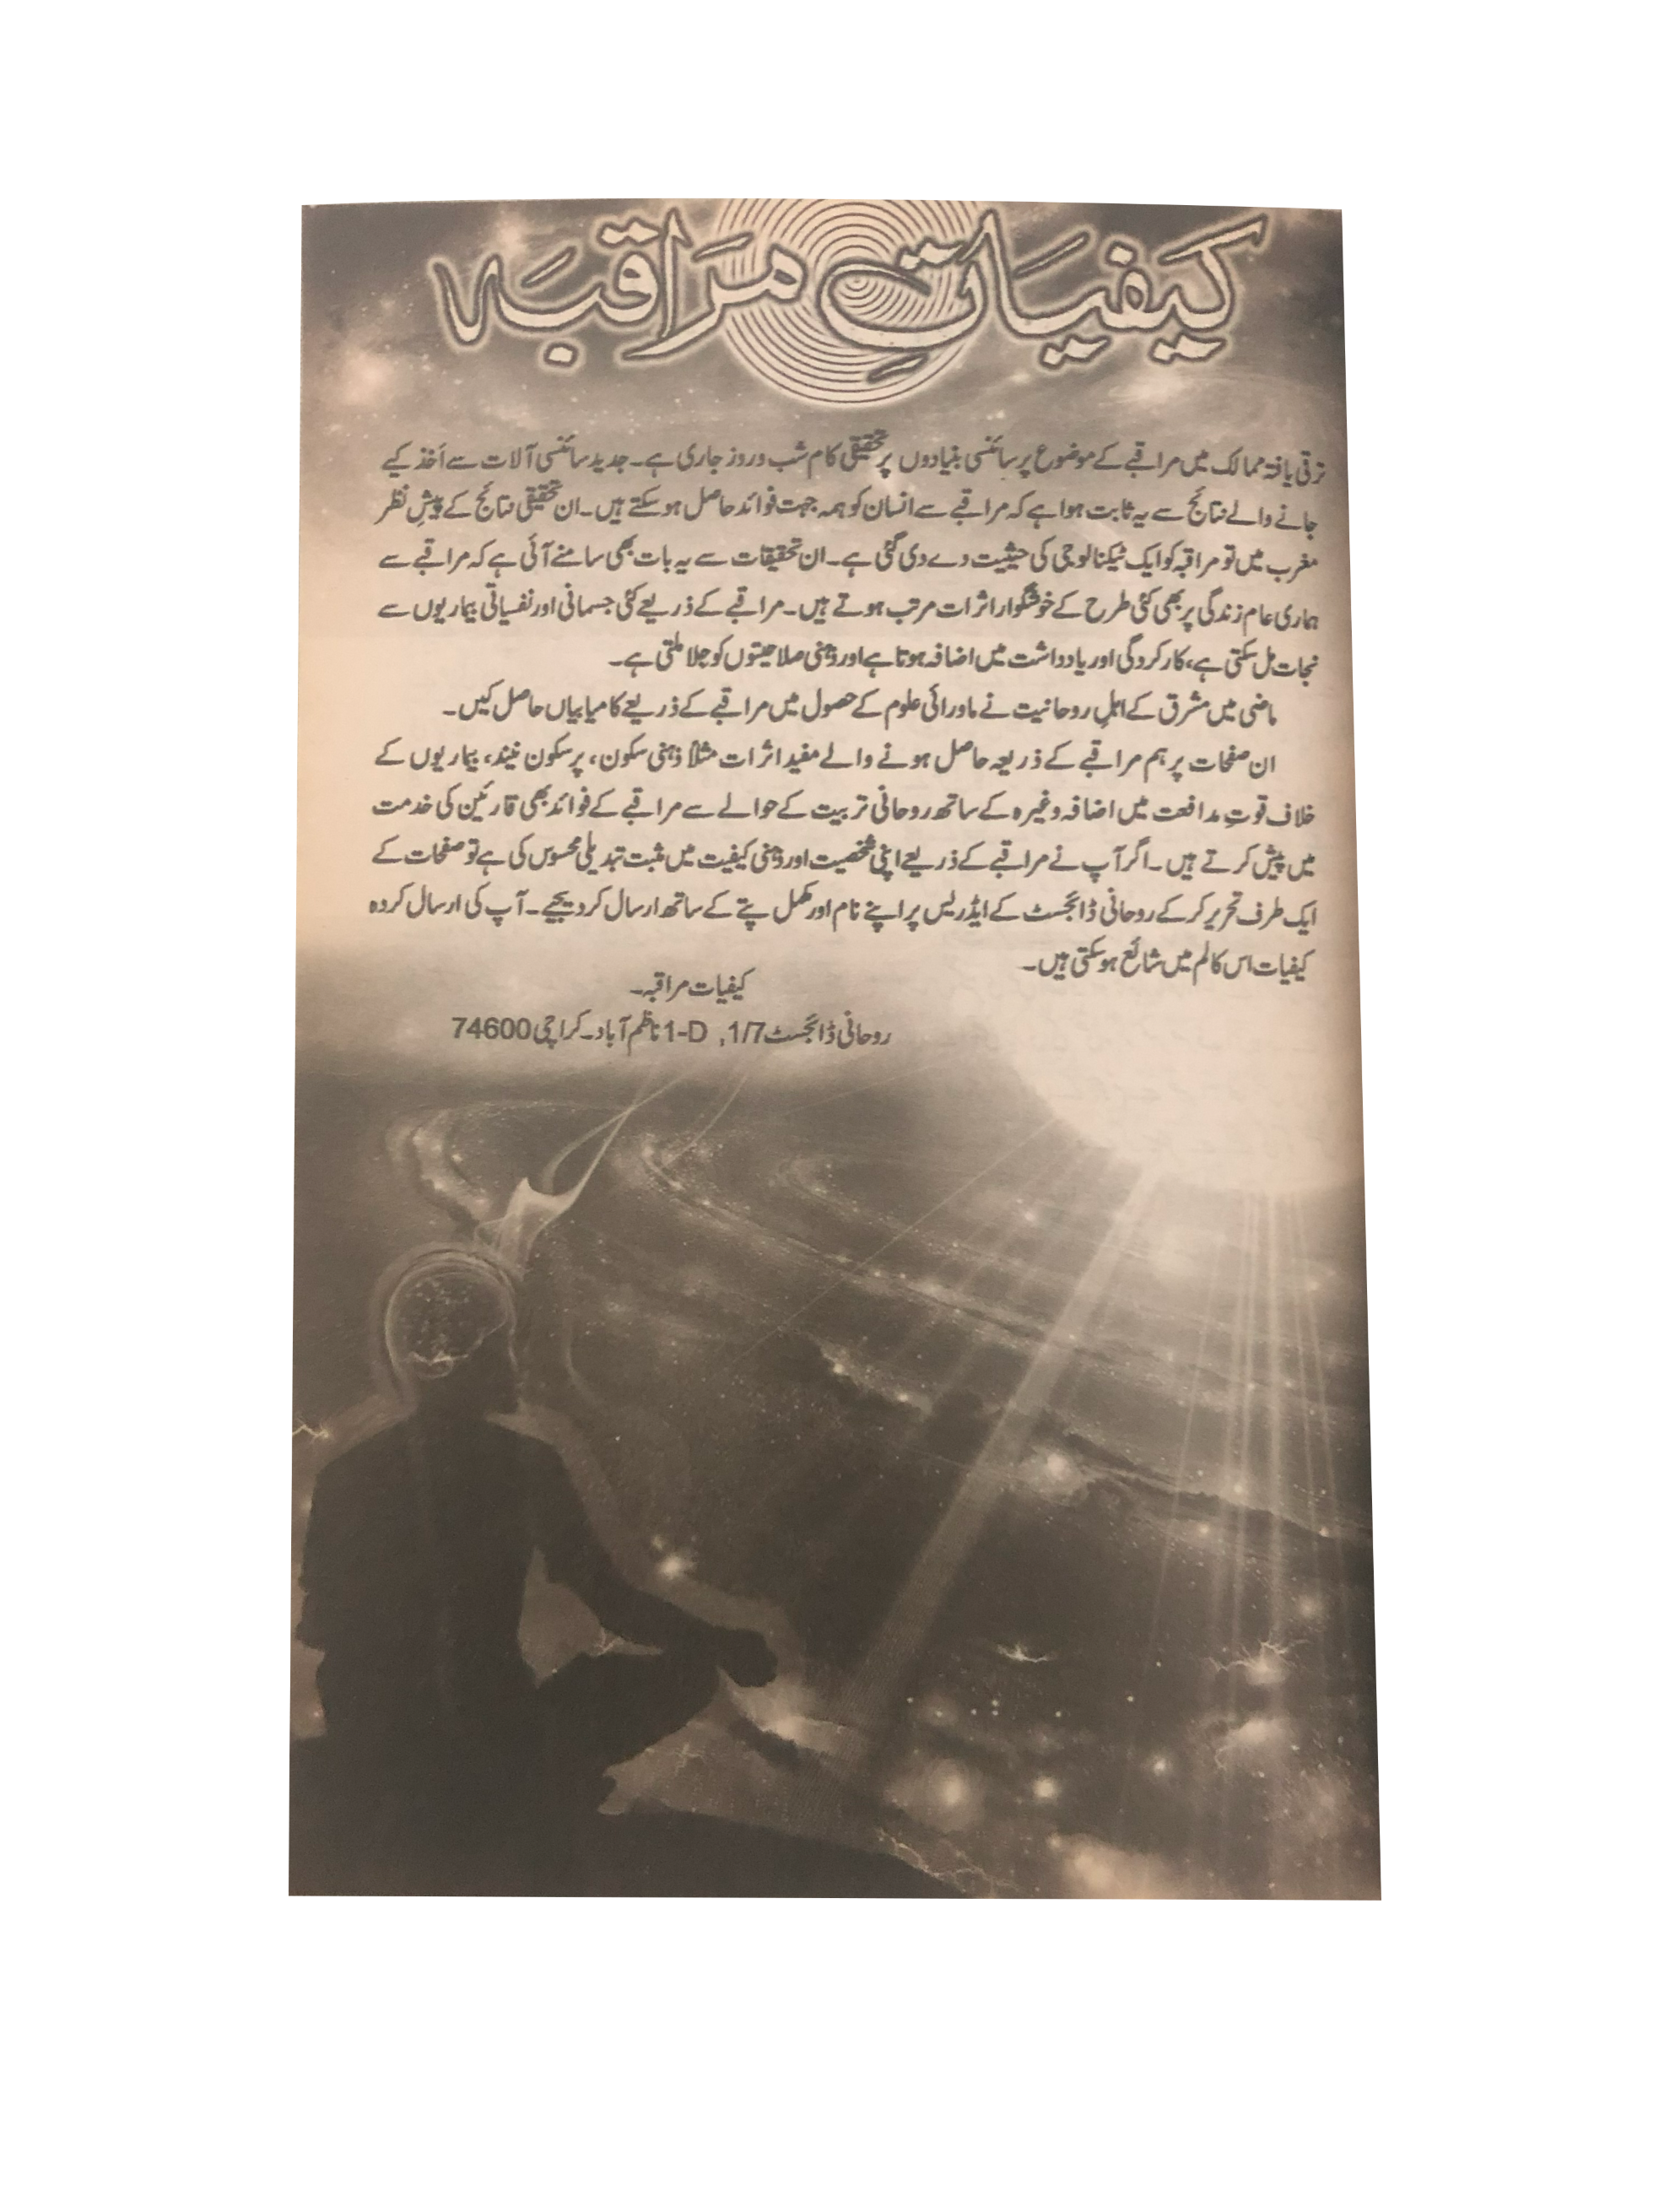 کیفیاتِ مراقبہ
ترقی یافتہ ممالک میں مراقبے کے موضوع پر سائنسی بنیادوں پر تحقیقی کام شب و روز جاری ہے۔ جدید سائنسی آلات سے اَخذ کیے
جانے والے نتائج سے یہ ثابت ہوا ہے کہ مراقبے سے انسان کو ہمہ جہت فوائد حاصل ہوسکتے ہیں۔ ان تحقیقی نتائج کے پیشِ نظر
مغرب میں تو مراقبہ کو ایک ٹیکنالوجی کی حیثیت دے دی گئی ہے۔ ان تحقیقات سے یہ بات بھی سامنے آئی ہے کہ مراقبے سے
ہماری عام زندگی پر بھی کئی طرح کے خوشگوار اثرات مرتب ہوتے ہیں۔ مراقبے کے ذریعے کئی جسمانی اور نفسیاتی بیماریوں سے
نجات مل سکتی ہے، کارکردگی اور یادداشت میں اضافہ ہوتا ہے اور ذہنی صلاحیتوں کو جِلا ملتی ہے۔
ماضی میں مشرق کے اہلِ روحانیت نے ماورائی علوم کے حصول میں مراقبے کے ذریعے کامیابیاں حاصل کیں۔
ان صفحات پر ہم مراقبے کے ذریعہ حاصل ہونے والے مفید اثرات مثلاً ذہنی سکون، پرسکون نیند، بیماریوں کے
خلاف قوتِ مدافعت میں اضافہ وغیرہ کے ساتھ روحانی تربیت کے حوالے سے مراقبے کے فوائد بھی قارئین کی خدمت
میں پیش کرتے ہیں۔ اگر آپ نے مراقبے کے ذریعے اپنی شخصیت اور ذہنی کیفیت میں مثبت تبدیلی محسوس کی ہے تو صفحات کے
ایک طرف تحریر کرکے روحانی ڈائجسٹ کے ایڈریس پر اپنے نام اور مکمل پتے کے ساتھ ارسال کردیجیے۔ آپ کی ارسال کردہ
کیفیات اس کالم میں شائع ہوسکتی ہیں۔
کیفیات مراقبہ۔
روحانی ڈائجسٹ 1/7, 1-D ناظم آباد۔ کراچی 74600